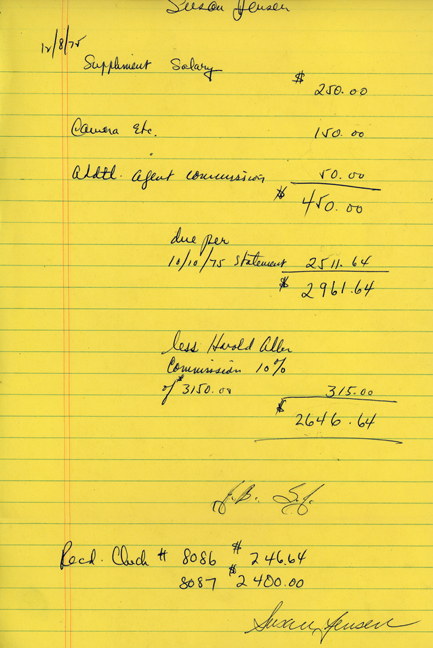 Susan Jensen
12/8/75
Suppliment Salary $ 250.00
Camera Etc. 150.00
Addtl. agent commission 50.00
$ 450.00
due per
10/10/75 Statement 2511.64
$ 2961.64
less Harold Allen
Commission 10%
of $3150.00 315.00
$ 2646.64
J.B. S.J.
Recd. Check # 8086 $ 246.64
8087 $ 2400.00
Susan Jensen